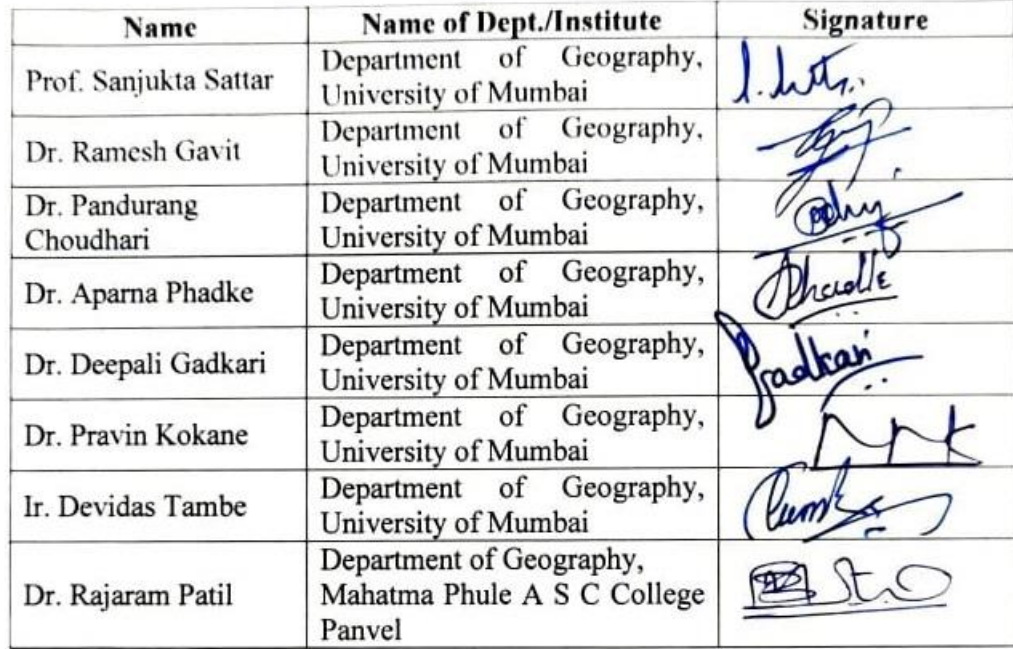 Name Name of Dept./Institute Signature
Prof. Sanjukta Sattar
Department of Geography,
University of Mumbai
Dr. Ramesh Gavit
Department of Geography,
University of Mumbai
Dr. Pandurang
Choudhari
Department of Geography,
University of Mumbai
Dr. Aparna Phadke
Department of Geography,
University of Mumbai
Dr. Deepali Gadkari
Department of Geography,
University of Mumbai
Gadkari
Dr. Pravin Kokane
Department of Geography,
University of Mumbai
Ir. Devidas Tambe
Department of Geography,
University of Mumbai
Dr. Rajaram Patil
Department of Geography,
Mahatma Phule A S C College
Panvel